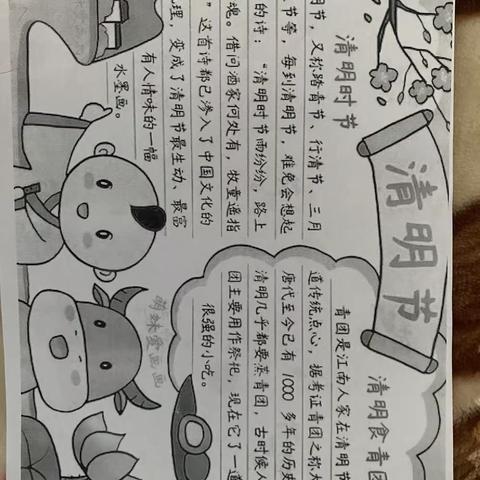 清明节
清明时节
明节，又称踏青节、行清节、三月
节等，每到清明节，难免会想起
的诗：“清明时节雨纷纷，路上
魂。借问酒家何处有，牧童遥指
”这首诗都已渗入了中国文化的
理，变成了清明节最生动、最富
有人情味的一幅
水墨画。
清明食青团
青团是江南人家在清明节
道传统点心，据考证青团之称大
唐代至今已有1000多年的历史
清明几乎都要蒸青团，古时候人
团主要用作祭祀，现在它了一道
很强的小吃。